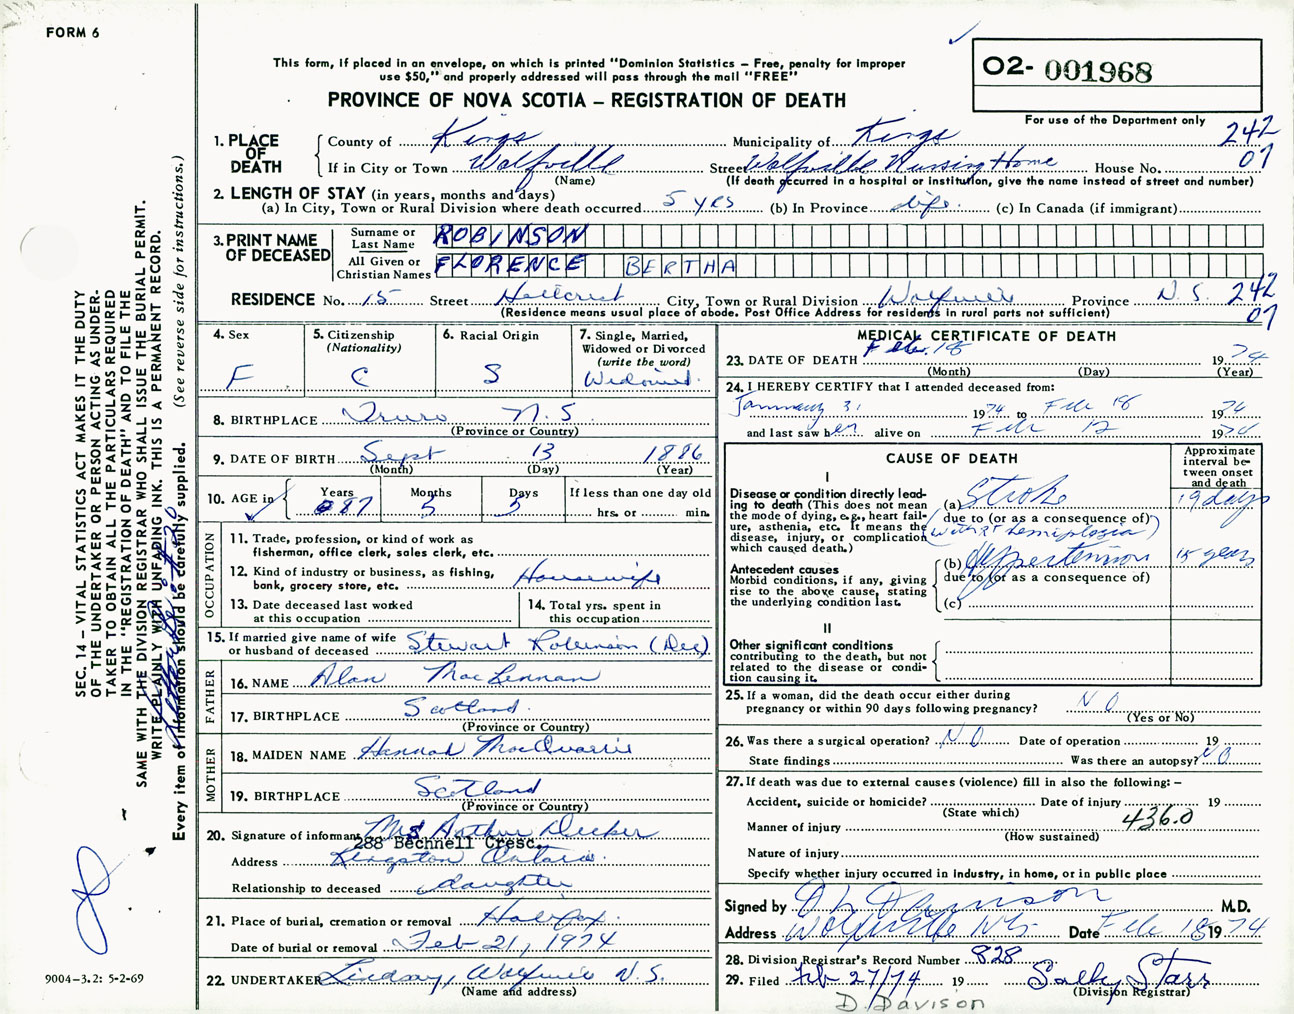 FORM 6
This form, if placed in an envelope, on which is printed "Dominion Statistics – Free, penalty for improper
use $50," and properly addressed will pass through the mail "FREE"
O2- 001968
For use of the Department only
PROVINCE OF NOVA SCOTIA – REGISTRATION OF DEATH
1. PLACE OF DEATH County of Kings Municipality of Kings 242
If in City or Town Wolfville Street Wolfville Nursing Home House No. 07
(Name) (If death occurred in a hospital or institution, give the name instead of street and number)
2. LENGTH OF STAY (in years, months and days)
(a) In City, Town or Rural Division where death occurred 5 yrs (b) In Province life. (c) In Canada (if immigrant)
3. PRINT NAME OF DECEASED
Surname or Last Name ROBINSON
All Given or Christian Names FLORENCE BERTHA
RESIDENCE No. 15 Street Hillcrest City, Town or Rural Division Wolfville Province N.S. 242
(Residence means usual place of abode. Post Office Address for residents in rural parts not sufficient) 07
4. Sex
F
5. Citizenship
(Nationality)
C
6. Racial Origin
S
7. Single, Married,
Widowed or Divorced
(write the word)
Widowed.
8. BIRTHPLACE Truro N.S.
(Province or Country)
9. DATE OF BIRTH Sept 13 1886
(Month) (Day) (Year)
10. AGE in Years Months Days If less than one day old
87 5 5 hrs. or min.
OCCUPATION
11. Trade, profession, or kind of work as
fisherman, office clerk, sales clerk, etc.
12. Kind of industry or business, as fishing,
bank, grocery store, etc. Housewife
13. Date deceased last worked
at this occupation
14. Total yrs. spent in
this occupation
15. If married give name of wife
or husband of deceased Stewart Robinson (Dec)
FATHER
16. NAME Alan MacLennan
17. BIRTHPLACE Scotland.
(Province or Country)
MOTHER
18. MAIDEN NAME Hannah MacQuarrie
19. BIRTHPLACE Scotland
(Province or Country)
20. Signature of informant Mrs Arthur Decker
288 Bechnell Cresc.
Address Kingston Ontario.
Relationship to deceased daughter
21. Place of burial, cremation or removal Halifax.
Date of burial or removal Feb 21, 1974
22. UNDERTAKER Lindsay, Wolfville N.S.
(Name and address)
MEDICAL CERTIFICATE OF DEATH
23. DATE OF DEATH Feb. 18 1974
(Month) (Day) (Year)
24. I HEREBY CERTIFY that I attended deceased from:
January 31 1974 to Feb 18 1974
and last saw her alive on Feb 12 1974
CAUSE OF DEATH
Approximate
interval be-
tween onset
and death
I
Disease or condition directly lead-
ing to death (This does not mean
the mode of dying, e.g., heart fail-
ure, asthenia, etc. It means the
disease, injury, or complication
which caused death.)
(a) Stroke 19 days
due to (or as a consequence of)
(with Rt hemiplegia)
Antecedent causes
Morbid conditions, if any, giving
rise to the above cause, stating
the underlying condition last.
(b) Hypertension 15 years
due to (or as a consequence of)
(c)
II
Other significant conditions
contributing to the death, but not
related to the disease or condi-
tion causing it.
25. If a woman, did the death occur either during
pregnancy or within 90 days following pregnancy? NO
(Yes or No)
26. Was there a surgical operation? NO Date of operation 19
State findings Was there an autopsy? NO
27. If death was due to external causes (violence) fill in also the following: –
Accident, suicide or homicide? Date of injury 19
(State which)
Manner of injury 436.0
(How sustained)
Nature of injury
Specify whether injury occurred in industry, in home, or in public place
Signed by M.D.
Address Wolfville NS. Date Feb 18 1974
28. Division Registrar's Record Number 828
29. Filed Feb 27/74 19 Sally Starr
(Division Registrar)
D. Davison
SEC. 14 – VITAL STATISTICS ACT MAKES IT THE DUTY
OF THE UNDERTAKER OR PERSON ACTING AS UNDER-
TAKER TO OBTAIN ALL THE PARTICULARS REQUIRED
IN THE "REGISTRATION OF DEATH" AND TO FILE THE
SAME WITH THE DIVISION REGISTRAR WHO SHALL ISSUE THE BURIAL PERMIT.
WRITE PLAINLY WITH UNFADING INK. THIS IS A PERMANENT RECORD.
Every item of information should be carefully supplied. (See reverse side for instructions.)
9004–3.2: 5-2-69